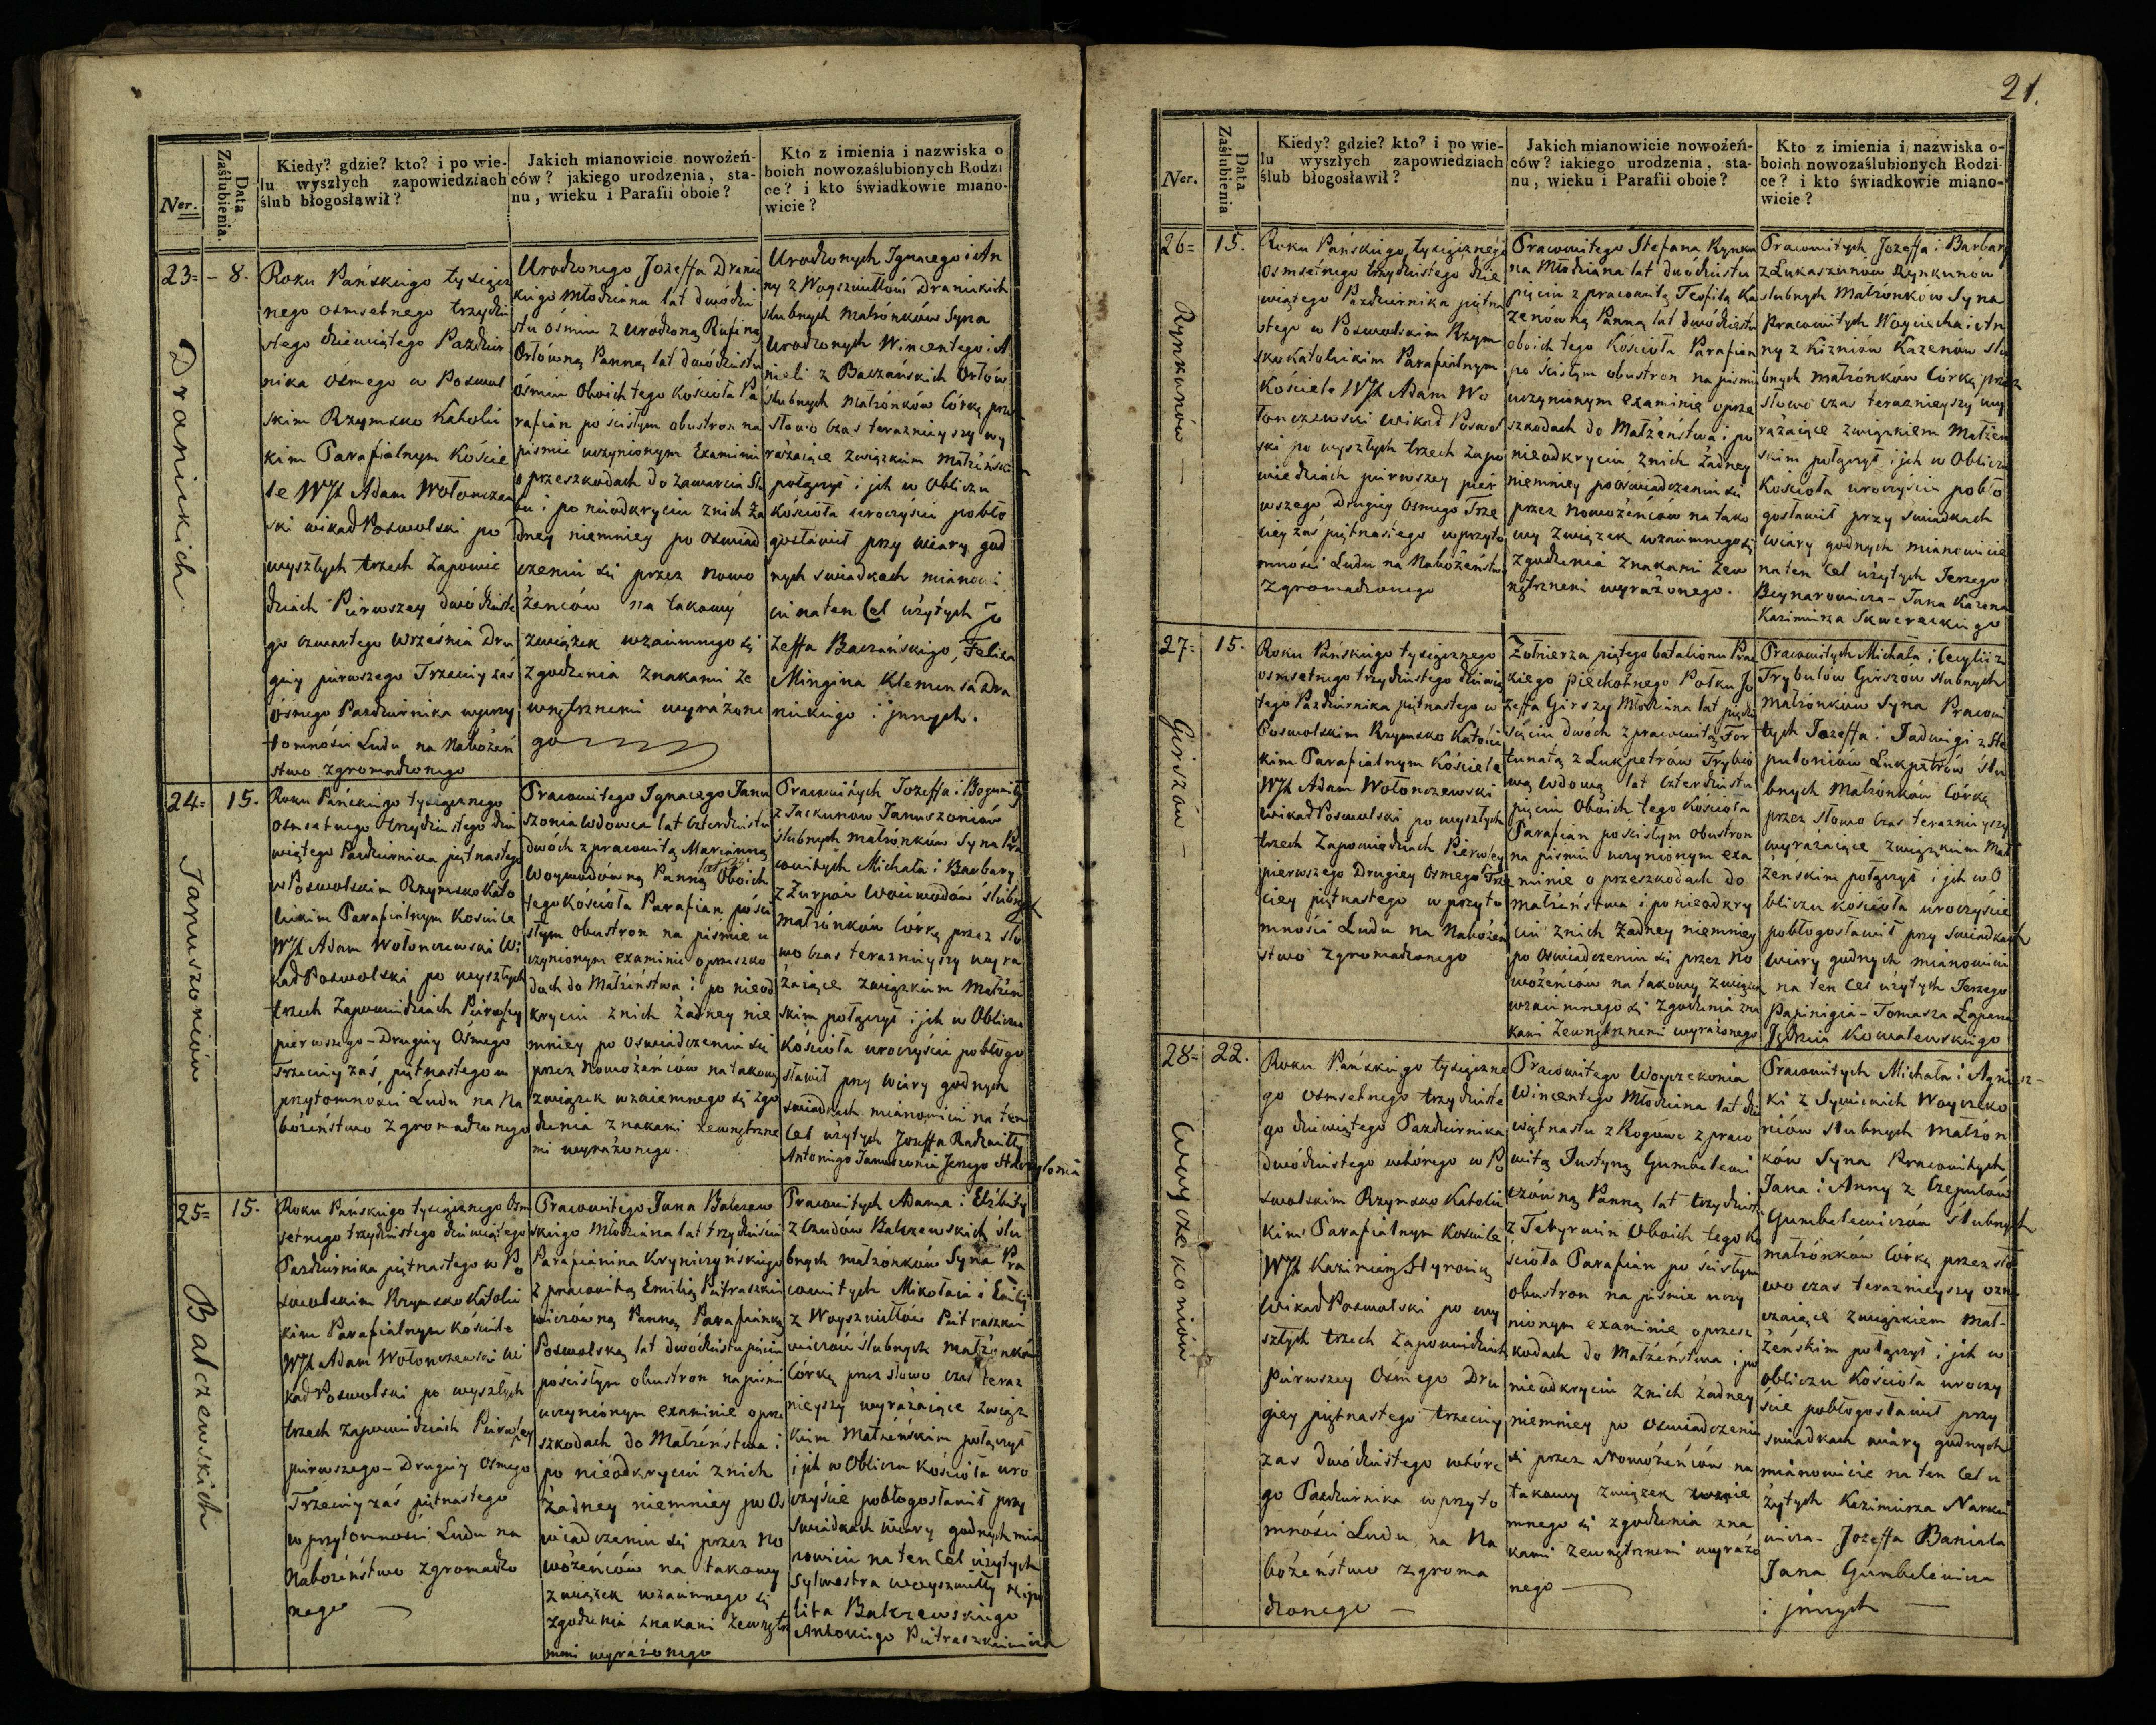 21.
Ner.
Data
Zaślubienia.
Kiedy? gdzie? kto? i po wie-
lu wyszłych zapowiedziach
ślub błogosławił?
Jakich mianowicie nowożeń-
ców? jakiego urodzenia, sta-
nu, wieku i Parafii oboie?
Kto z imienia i nazwiska o
boich nowozaślubionych Rodzi
ce? i kto świadkowie miano-
wicie?
23= - 8.
Dranickich.
Roku Pańskiego tysiącz
nego osmsetnego trzydzie
stego dziewiątego Pazdzier
nika osmego w Poswol
skim Rzymsko Katolic
kim Parafialnym Koście
le WJX Adam Wołonczew
ski wikad Poswolski po
wyszłych trzech Zapowie
dziach Pierwszey dwódzieste
go czwartego Września Dru
giey pierwszego Trzeciey zaś
ósmego Pazdziernika w przy
tomności Ludu na Nabożeń
stwo zgromadzonego
Urodzonego Jozeffa Dranic
kiego Młodziana lat dwódzie
stu ósmiu z Urodzoną Rufiną
Orłówną Panną lat dwódziestu
Ósmiu Oboich tego Kościoła Pa
rafian po ścisłym obustron na
piśmie uczynionym Examinie
o przeszkodach do zawarcia Slu
bu i po nieodkryciu znich ża
dney niemniey po oswiad
czeniu się przez nowo
żeńców na takowy
związek wzaiemnego się
zgodzenia znakami ze
wnętrznemi wyrażone
go
Urodzonych Jgnacego i An
ny z Woyszwiłłów Dranickich
slubnych małżonków Syna
Urodzonych Wincentego i A
nieli z Baczańskich Orłów
ślubnych Małżonków Córkę prze
słowo czas teraznieyszy wy
rażaiące związkiem Małżeńskim
połączył i jch w Obliczu
Kościoła uroczyście pobło
gosławił przy wiary god
nych swiadkach mianowi
cie na ten Cel użytych Jo
zeffa Baczańskiego, Felixa
Mingina Klemensa Dra
nickiego i jnnych.
24= 15.
Januszoniów
Roku Pańskiego tysiącznego
osmsetnego trzydziestego dzie
wiątego Pazdziernika piętnastego
w Poswolskim Rzymsko Kato
lickim Parafialnym Kościele
WJX Adam Wołonczewski Wi
kad Poswolski po wyszłych
trzech Zapowiedziach Pierwszey
pierwszego - Drugiey Ósmego
Trzeciey zaś piętnastego w
przytomności Ludu na Na
bożeństwo Zgromadzonego
Pracowitego Jgnacego Janu
szonia Wdowca lat Czterdziestu
dwóch z pracowitą Maryanną
Woywodówną Panną lat Oboich
tego Kościoła Parafian po ści
słym obustron na piśmie u
czynionym examinie o przeszko
dach do Małżeństwa i po nieod
kryciu znich żadney nie
mniey po oswiadczeniu się
przez Nowożeńców na takowy
związek wzaiemnego się zgo
dzenia znakami zewnętrzne
mi wyrażonego.
Pracowitych Jozeffa i Bogumiły
z Jackunow Januszoniów
slubnych małżonków Syna Pra
cowitych Michała i Barbary
z Żurpów Woiewodów slubnych
małżonków Córkę przez sło
wo Czas teraznieyszy wyra
żaiące związkiem Małżeń
skim połączył i jch w Obliczu
Kościoła uroczyście pobłogo
sławił przy wiary godnych
swiadkach mianowicie na ten
Cel użytych Jozeffa
Antoniego Januszonia Jerzego
25= 15.
Balczewskich
Roku Pańskiego tysiącznego Osm
setnego trzydziestego dziewiątego
Pazdziernika piętnastego w Po
swolskim Rzymsko Katolic
kim Parafialnym Kościele
WJX Adam Wołonczewski Wi
kad Poswolski po wyszłych
trzech zapowiedziach Pierwszey
pierwszego - Drugiey Osmego
Trzeciey zaś piętnastego
w przytomności Ludu na
Nabożeństwo zgromadzo
nego
Pracowitego Jana Balczew
skiego Młodziana lat trzydziestu
Parafianina Kryniczyńskiego
z pracowitą Emilią Pietraszkie
wiczówną Panną Parafianką
Poswolską lat dwódziestu pięciu
po ścisłym obustron na piśmie
uczynionym examinie o prze
szkodach do Małżeństwa i
po nieodkryciu znich
żadney niemniey po Os
wiadczeniu się przez No
wożeńców na takowy
związek wzaiemnego się
zgodzenia znakami zewnętrz
nemi wyrażonego
Pracowitych Adama i Elżbiety
z Balczewskich ślu
bnych małżonków Syna Pra
cowitych Mikołaia i Emilij
z Woyszwiłłów Pietraszkie
wiczów ślubnych Małżonków
Córkę przez słowo czas teraz
nieyszy wyrażaiące związ
kiem Małżeńskim połączył
i jch w Obliczu Kościoła uro
czyście pobłogosławił przy
swiadkach wiary godnych mia
nowicie na ten Cel użytych
Sylwestra Woyszwiłły Hipo
lita Balczewskiego
Antoniego Pietraszkiewicza
Ner.
Data
Zaślubienia
Kiedy? gdzie? kto? i po wie-
lu wyszłych zapowiedziach
ślub błogosławił?
Jakich mianowicie nowożeń-
ców? iakiego urodzenia, sta-
nu, wieku i Parafii oboie?
Kto z imienia i nazwiska o-
boich nowozaślubionych Rodzi-
ce? i kto świadkowie miano-
wicie?
26= 15.
Rynkunów
Roku Pańskiego tysiącznego
osmsetnego trzydziestego dzie
wiątego Pazdziernika piętna
stego w Poswolskim Rzym
sko Katolickim Parafialnym
Kościele WJX Adam Wo
łonczewski wikad Poswol
ski po wyszłych trzech zapo
wiedziach pierwszey pier
wszego Drugiey Osmego Trze
ciey zaś piętnastego w przyto
mności Ludu na Nabożeństwo
zgromadzonego
Pracowitego Stefana Rynku
na Młodziana lat dwódziestu
pięciu z pracowitą Teofilą Ka
zenówną Panną lat dwódziestu
oboich tego Kościoła Parafian
po ścisłym obustron na piśmie
uczynionym examinie o prze
szkodach do Małżeństwa i po
nieodkryciu znich żadney
niemniey po oswiadczeniu się
przez Nowożeńców na tako
wy związek wzaiemnego się
zgodzenia znakami Zew
nętrznemi wyrażonego.
Pracowitych Jozeffa i Barbary
z Łukaszunów Rynkunów
slubnych Małżonków Syna
Pracowitych Woyciecha i An
ny z Kizniów Kazenów slu
bnych małżonków Córkę przez
słowo czas teraznieyszy wy
rażaiące związkiem Małżeń
skim połączył i jch w Obliczu
Kościoła uroczyście pobło
gosławił przy swiadkach
wiary godnych mianowicie
na ten Cel użytych Jerzego
Beynarowicza - Jana Kazena
Kazimierza Skwereckiego
27= 15.
Girszów
Roku Pańskiego tysiącznego
osmsetnego trzydziestego dziewią
tego Pazdziernika piętnastego w
Poswolskim Rzymsko Katolic
kim Parafialnym Kościele
WJX Adam Wołonczewski
wikad Poswolski po wyszłych
trzech Zapowiedziach Pierwszey
pierwszego Drugiey Osmego Trze
ciey piętnastego w przyto
mności Ludu na Nabożeń
stwo zgromadzonego
Żołnierza piątego batalionu
kiego piechotnego Połku Jo
zeffa Girszy Młodziana lat pięćdzie
sięciu dwóch z pracowitą For
tunatą z Lukpetrów Trybió
wą Wdową lat Czterdziestu
pięciu Oboich tego Kościoła
Parafian po ścisłym obustron
na piśmie uczynionym exa
minie o przeszkodach do
małżeństwa i po nieodkry
ciu znich Żadney niemniey
po Oswiadczeniu się przez No
wożeńców na takowy związek
wzaiemnego się zgodzenia zna
kami Zewnętrznemi wyrażonego
Pracowitych Michała i Cecylii z
Trybułów Girszów slubnych
małżonków Syna Pracowi
tych Jozeffa i Jadwigi z Ste
pułoniów Lukpetrów slu
bnych Małżonków Córkę
przez słowo Czas teraznieyszy
wyrażaiące związkiem Mał
żeńskim połączył i jch w O
bliczu Kościoła uroczyście
pobłogosławił przy swiadkach
wiary godnych mianowicie
na ten Cel użytych Jerzego
Papinigia - Tomasza Łapena
Kowalewskiego
28= 22.
Woyczekoniów
Roku Pańskiego tysiączne
go osmsetnego trzydzieste
go dziewiątego Pazdziernika
dwódziestego wtórego w Po
swolskim Rzymsko Katolic
kim Parafialnym Kościele
WJX Kazimierz Styrowicz
Wikad Poswolski po wy
szłych trzech Zapowiedziach
pierwszey Osmego Dru
giey piętnastego trzeciey
zas dwódziestego wtóre
go Pazdziernika w przyto
mności Ludu na Na
bożeństwo zgroma
dzonego
Pracowitego Woyczekonia
Wincentego Młodziana lat dzie
więtnastu z Rogówe z praco
witą Justyną Gumbelewi
czówną Panną lat trzydziestu
z Tetyrwin Oboich tego Ko
ścioła Parafian po ścisłym
obustron na piśmie uczy
nionym examinie o przesz
kodach do Małżeństwa i po
nieodkryciu znich żadney
niemniey po oswiadczeniu
się przez Nowożeńców na
takowy związek wzaie
mnego się zgodzenia zna
kami zewnętrznemi wyrażo
nego
Pracowitych Michała i Agniesz-
ki z Sywickich Woyczeko
niów slubnych małżon
ków Syna Pracowitych
Jana i Anny z Czepułów
Gumbelewiczów slubnych
małżonków Córkę przez sło
wo czas teraznieyszy ozna
czaiące związkiem Mał-
żeńskim połączył i jch w
obliczu Kościoła uroczy
ście pobłogosławił przy
swiadkach wiary godnych
mianowicie na ten Cel u
żytych Kazimierza Narkie
wicza - Jozeffa Baniula
Jana Gumbelewicza
i jnnych